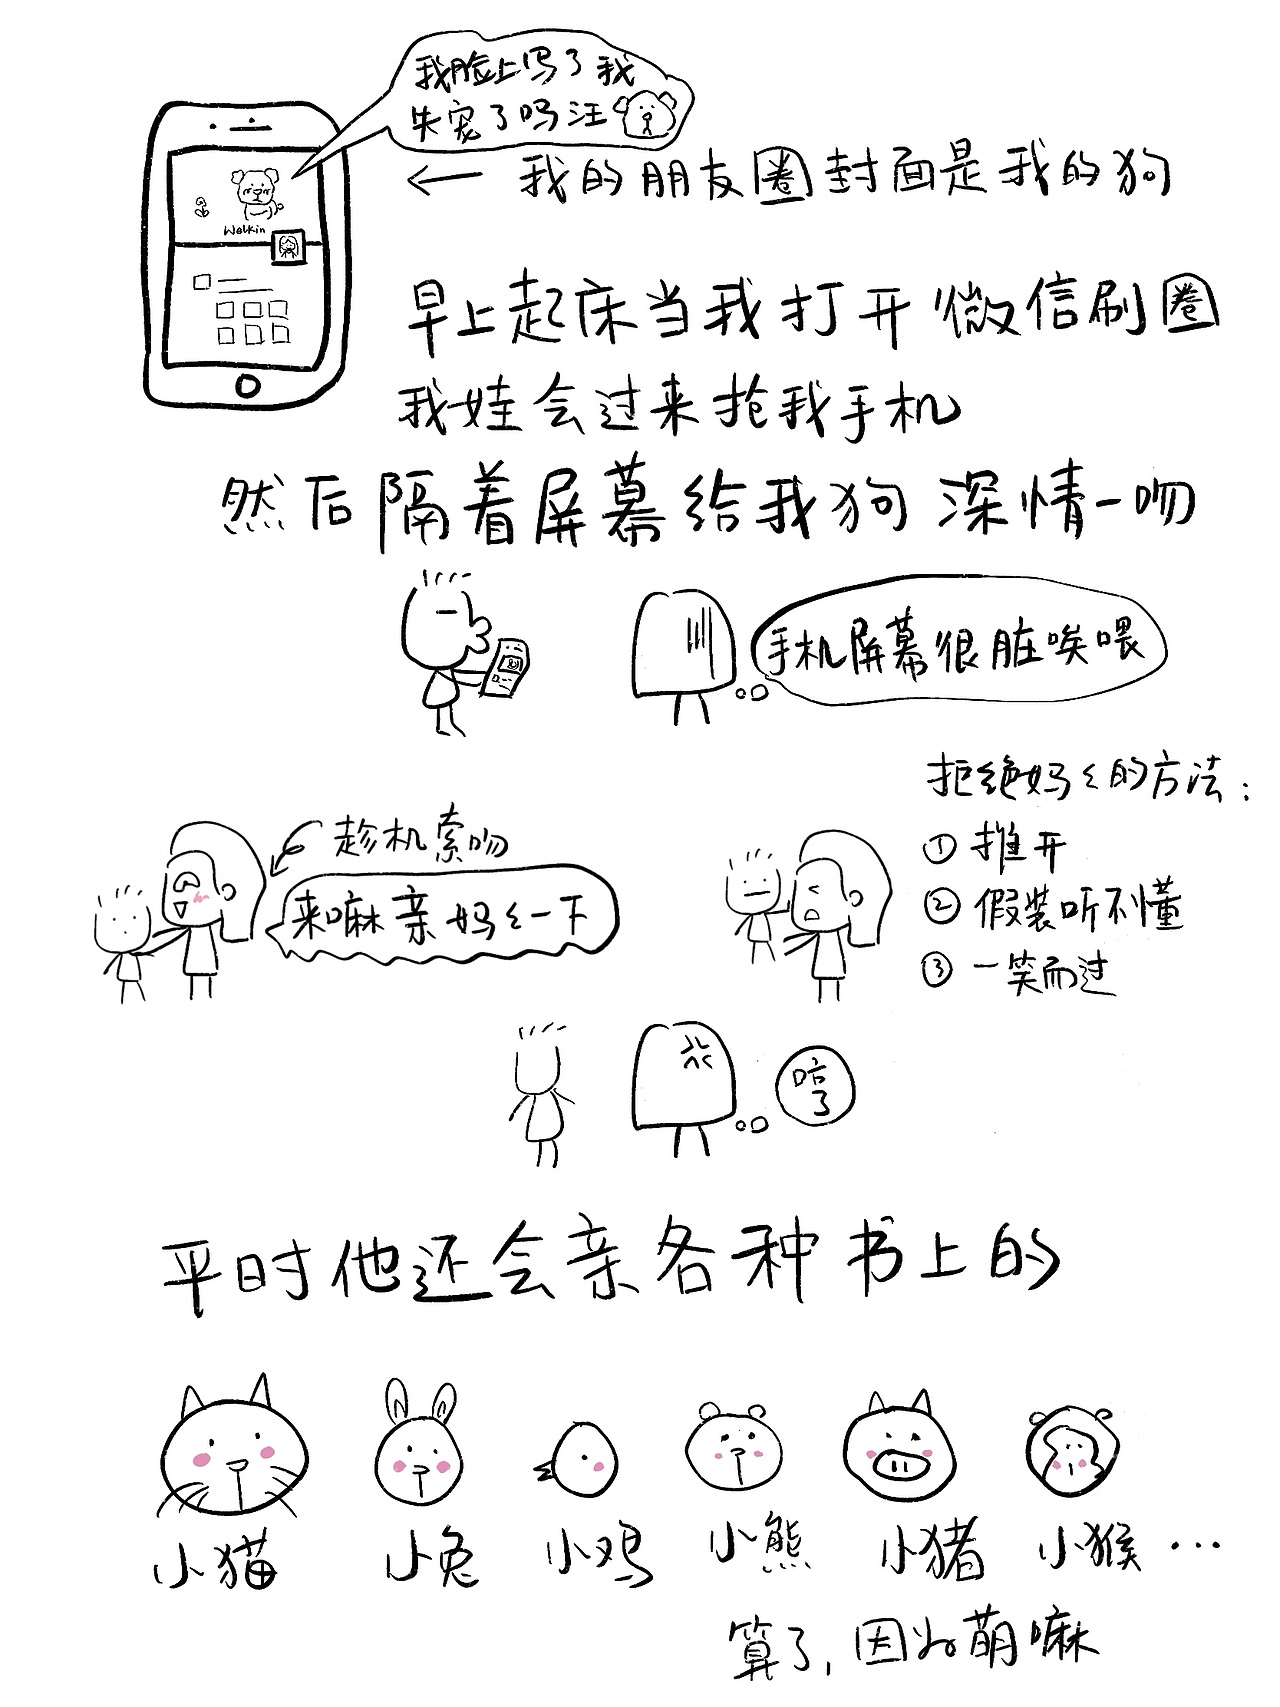 我脸上写了我
失宠了吗汪
Welkin
← 我的朋友圈封面是我的狗
早上起床当我打开微信刷圈
我娃会过来抢我手机
然后隔着屏幕给我狗深情一吻
手机屏幕很脏唉喂
趁机索吻
来嘛亲妈々一下
拒绝妈々的方法:
① 推开
② 假装听不懂
③ 一笑而过
咭了
平时他还会亲各种书上的
小猫 小兔 小鸡 小熊 小猪 小猴 …
算了,因为萌嘛